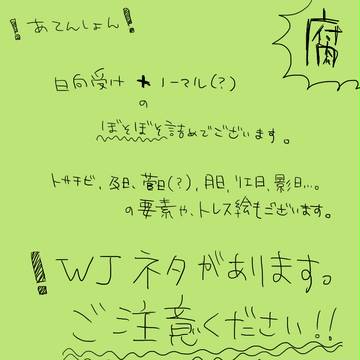 ！あてんしょん！
腐
日向受け + ノーマル(？)
の
ぼそぼそ詰めでございます。
トサチビ、及日、菅日(？)、月日、リエ日、影日…。
の要素や、トレス絵もございます。
！WJネタがあります。
ご注意ください！！